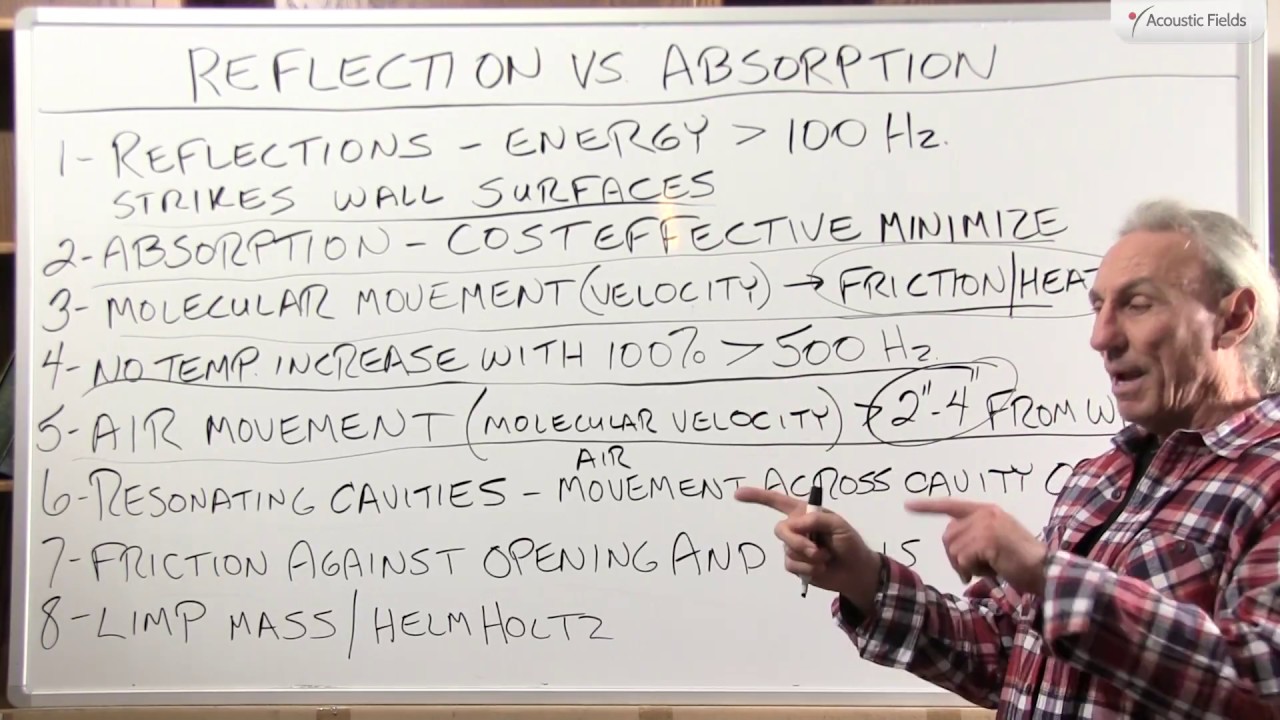 Acoustic Fields
REFLECTION VS. ABSORPTION
1- REFLECTIONS - ENERGY > 100 Hz.
STRIKES WALL SURFACES
2- ABSORPTION - COST EFFECTIVE MINIMIZE
3- MOLECULAR MOVEMENT (VELOCITY) → FRICTION/HEAT
4- NO TEMP. INCREASE WITH 100% > 500 Hz.
5- AIR MOVEMENT (MOLECULAR VELOCITY) → 2"-4" FROM
AIR
6- RESONATING CAVITIES - MOVEMENT ACROSS CAVITY
7- FRICTION AGAINST OPENING AND
8- LIMP MASS/HELMHOLTZ